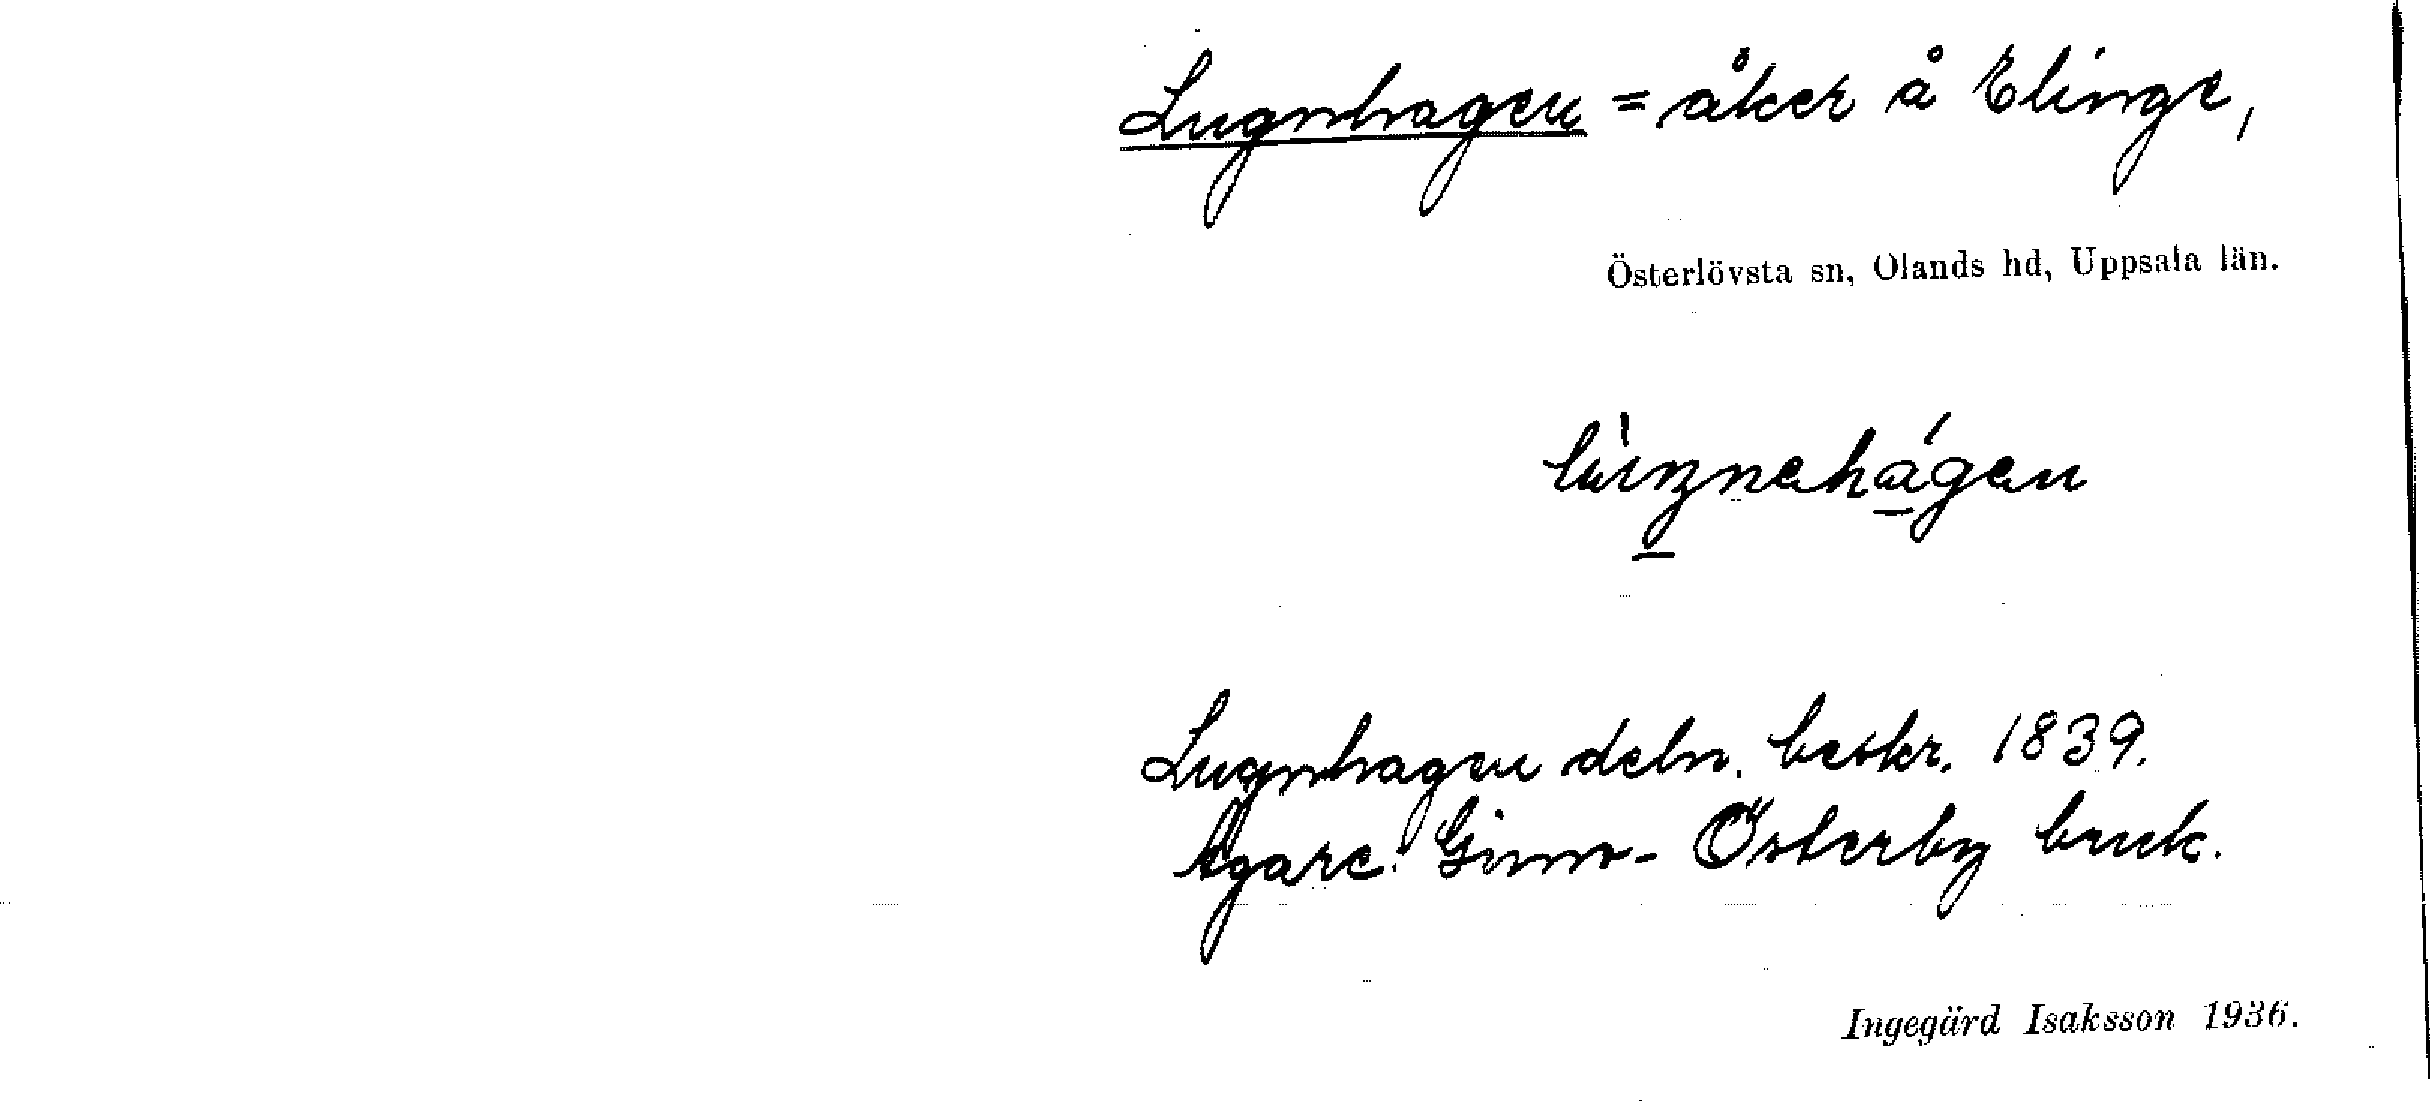 Lugnhagen = åker å Elinge,
Österlövsta sn, Olands hd, Uppsala län.
Lugnhagen deln. beskr. 1839.
Ägare: Gimo-Österby bruk.
Ingegärd Isaksson 1936.